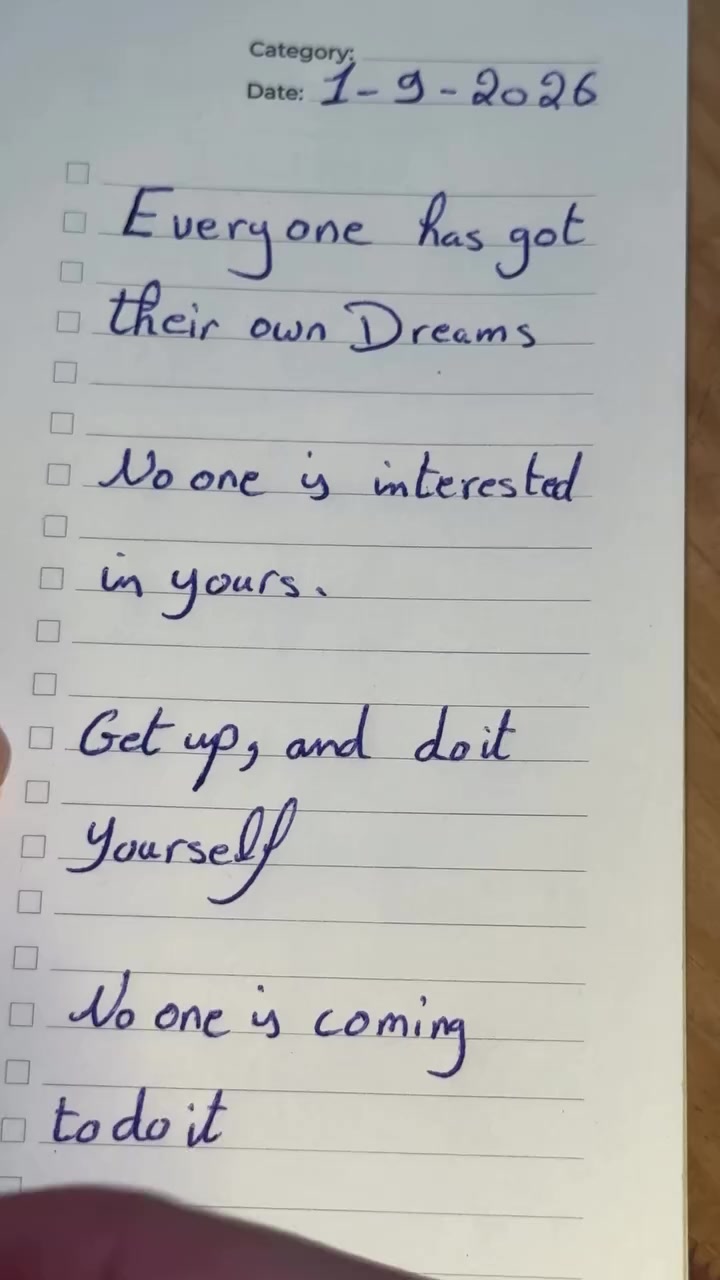 Category:
Date: 1-9-2026
Everyone has got
their own Dreams
No one is interested
in yours.
Get up, and do it
yourself
No one is coming
to do it